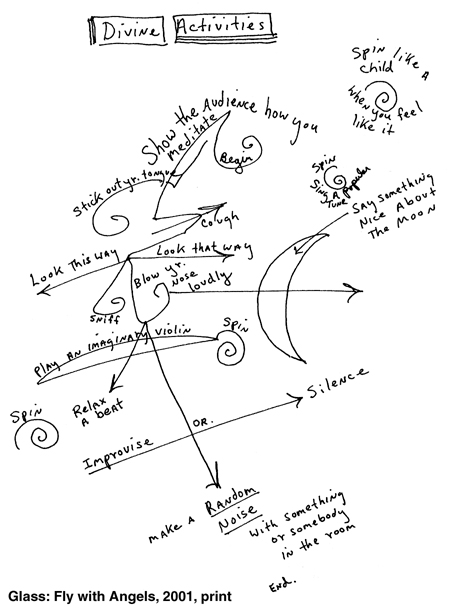 Divine Activities
Spin like a
child
when you feel
like it
Show the Audience how you
meditate
Begin
Stick out yr. tongue
Spin
Sing a popular
tune
Say something
nice about
the moon
Cough
Look this way
Look that way
Blow yr.
nose
loudly
Sniff
Play an imaginary violin
Spin
Relax
a beat
Silence
Spin
Improvise
OR.
Make a Random
Noise
with something
or somebody
in the room
End.
Glass: Fly with Angels, 2001, print